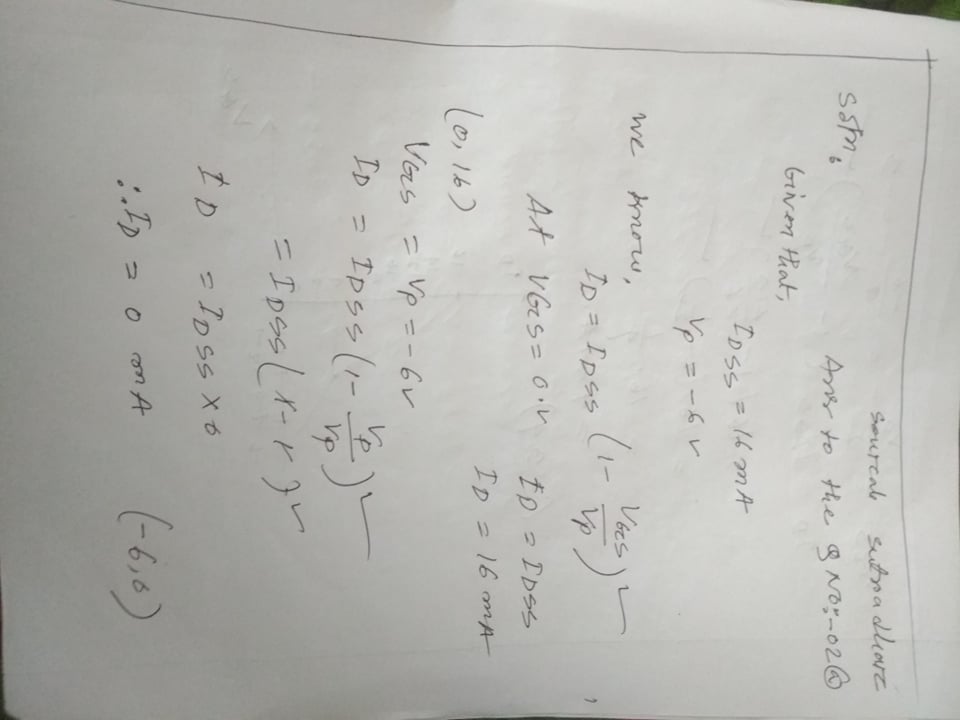 Sourcab sutradharc
Ans to the Q NO:-02(a)
Soln:
Given that,
IDSS = 16 mA
Vp = -6 v
we know,
ID = IDSS (1 - VGS/Vp)²
At VGS = 0.v ID = IDSS
ID = 16 mA
(0, 16)
VGS = Vp = -6v
ID = IDSS (1 - Vp/Vp)²
= IDSS (1 - 1)²
ID = IDSS x 0
∴ ID = 0 mA (-6, 0)